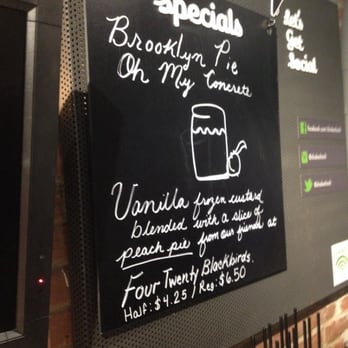 specials
Brooklyn Pie
Oh My Concrete
Vanilla frozen custard
blended with a slice of
peach pie from our friends at
Four Twenty Blackbirds.
Half: $4.25 / Reg: $6.50
Let's
Get
Social